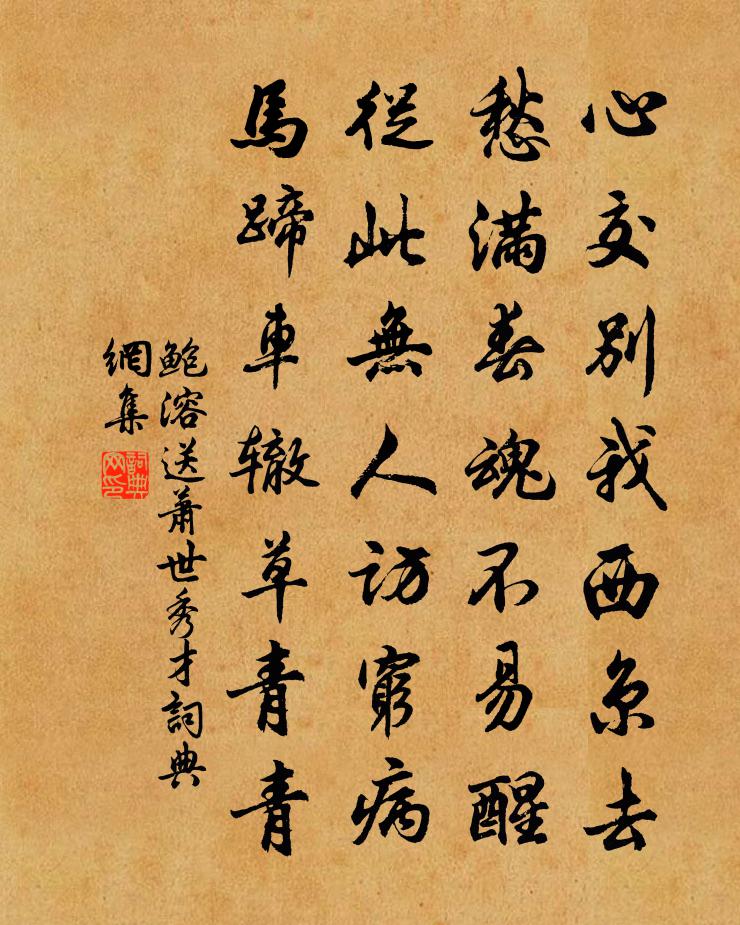 心交別我西京去
愁滿春魂不易醒
從此無人訪窮病
馬蹄車辙草青青
鮑溶送蕭世秀才詞典
網集
詞典
网印